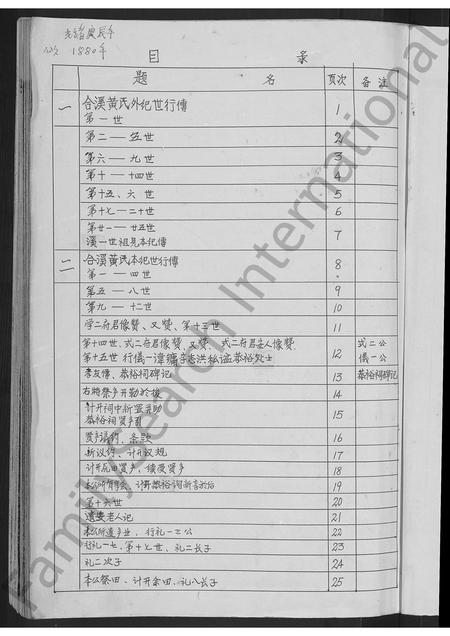 光緒庚辰年
1880年
目 录
題 名 頁次 备注
一 合溪黄氏外纪世行傳
第一世 1
第二——五世 2
第六——九世 3
第十——十四世 4
第十五、六世 5
第十七——二十世 6
第廿一——廿五世
溪一世祖見本纪傳 7
二 合溪黄氏本纪世行傳
第一——四世 8
第五——八世 9
第九——十二世 10
学二府君像贊、又贊、第十三世 11
第十四世, 式二府君像贊, 又贊, 式二府君安人像贊 式二公
第十五世 行儀一諱 志洪私谥恭裕处士 12 儀一公
孝友傳、恭裕祠碑记 13 恭裕祠碑记
右將祭予開勒於後 14
計开祠中新置
恭裕祠贤 15
贤 議約、条款 16
新议约、计开权规 17
计开 田贤产、续
贤产 18
本公 19
第十六世 20
遗安老人记 21
本公所遗产业、行礼一三公 22
行礼一七、第十七世、礼二长子 23
礼二次子 24
本公祭田、计开余田、礼八长子 25
FamilySearch International